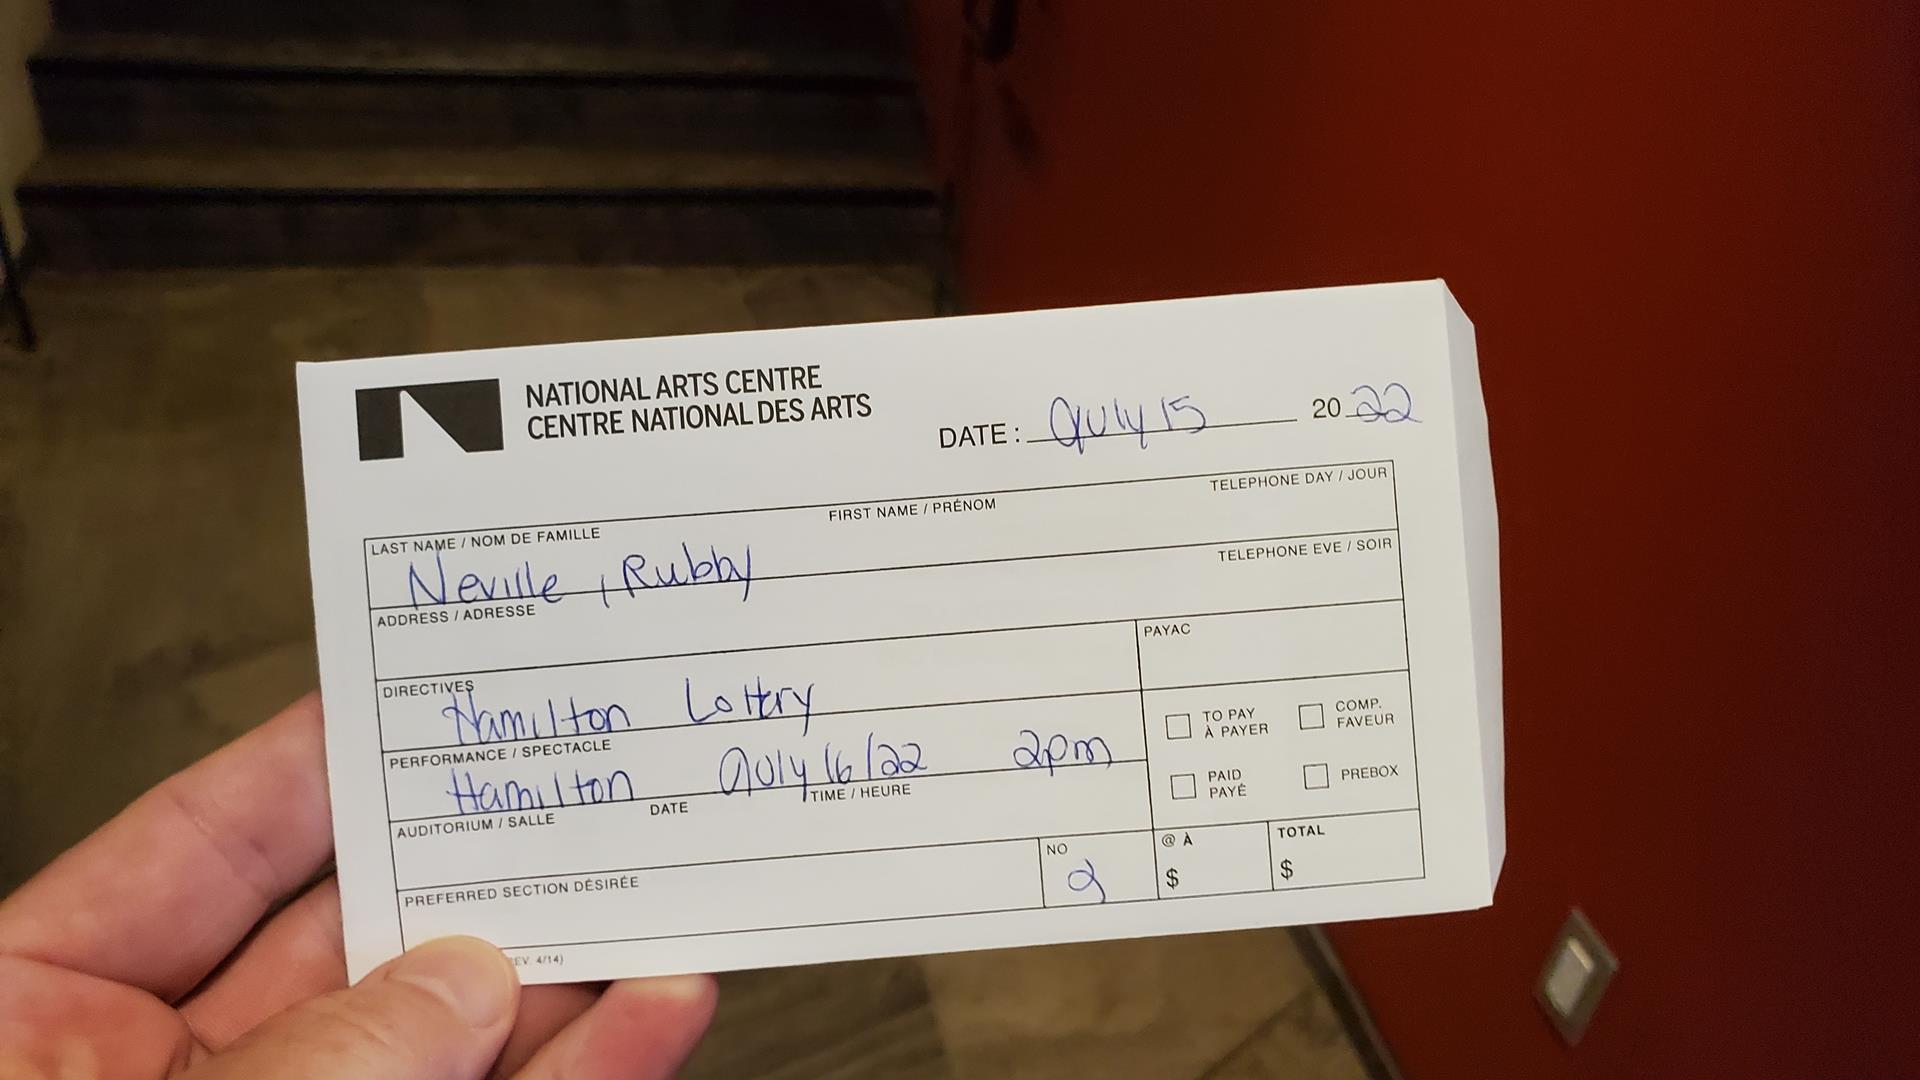 NATIONAL ARTS CENTRE
CENTRE NATIONAL DES ARTS
DATE: July 15 2022
LAST NAME / NOM DE FAMILLE FIRST NAME / PRÉNOM TELEPHONE DAY / JOUR
Neville, Rubby
ADDRESS / ADRESSE TELEPHONE EVE / SOIR
DIRECTIVES PAYAC
Hamilton Lottery
PERFORMANCE / SPECTACLE
Hamilton July 16/22 2pm
DATE TIME / HEURE
TO PAY COMP.
À PAYER FAVEUR
PAID PREBOX
PAYÉ
AUDITORIUM / SALLE
NO @ À TOTAL
2 $ $
PREFERRED SECTION DÉSIRÉE
4/14)